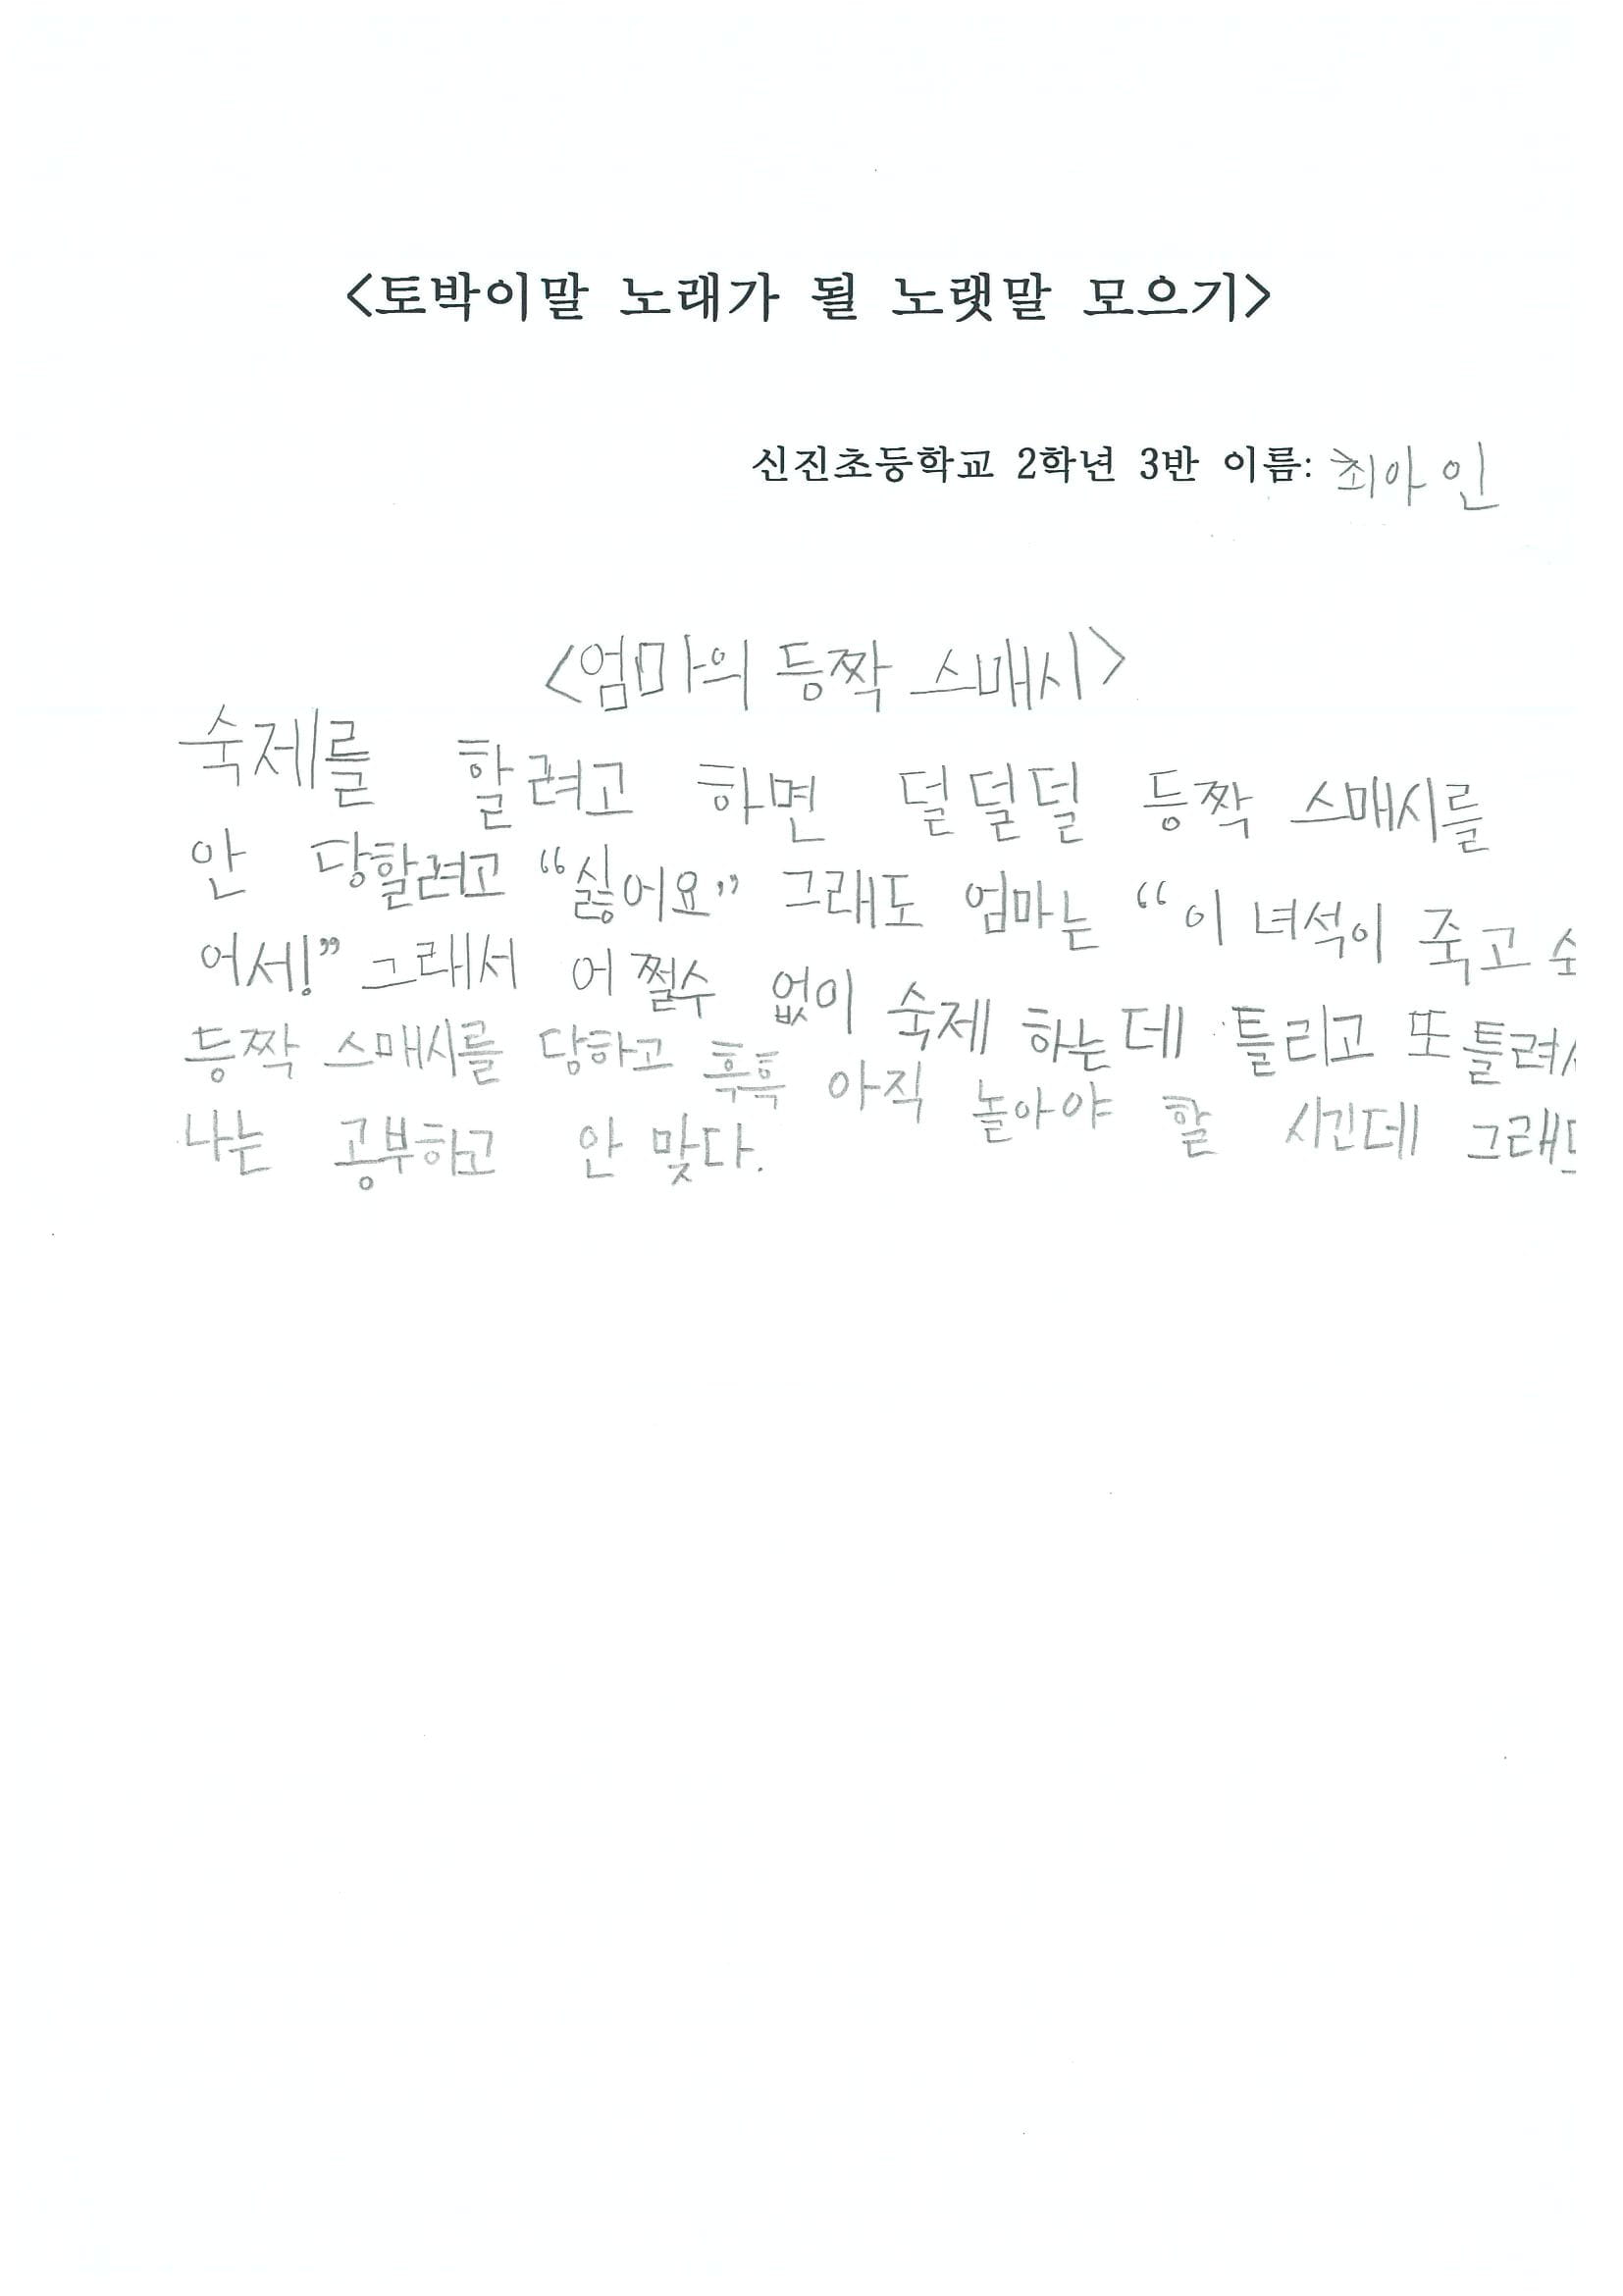 <토박이말 노래가 될 노랫말 모으기>
신진초등학교 2학년 3반 이름: 최아인
<엄마의 등짝 스매시>
숙제를 할려고 하면 덜덜덜 등짝 스매시를
안 당할려고 “싫어요” 그래도 엄마는 “이 녀석이 죽고
어서!” 그래서 어쩔수 없이 숙제 하는데 틀리고 또 틀려서
등짝 스매시를 당하고 흑흑 아직 놀아야 할 시긴데 그래도
나는 공부하고 안 맞다.